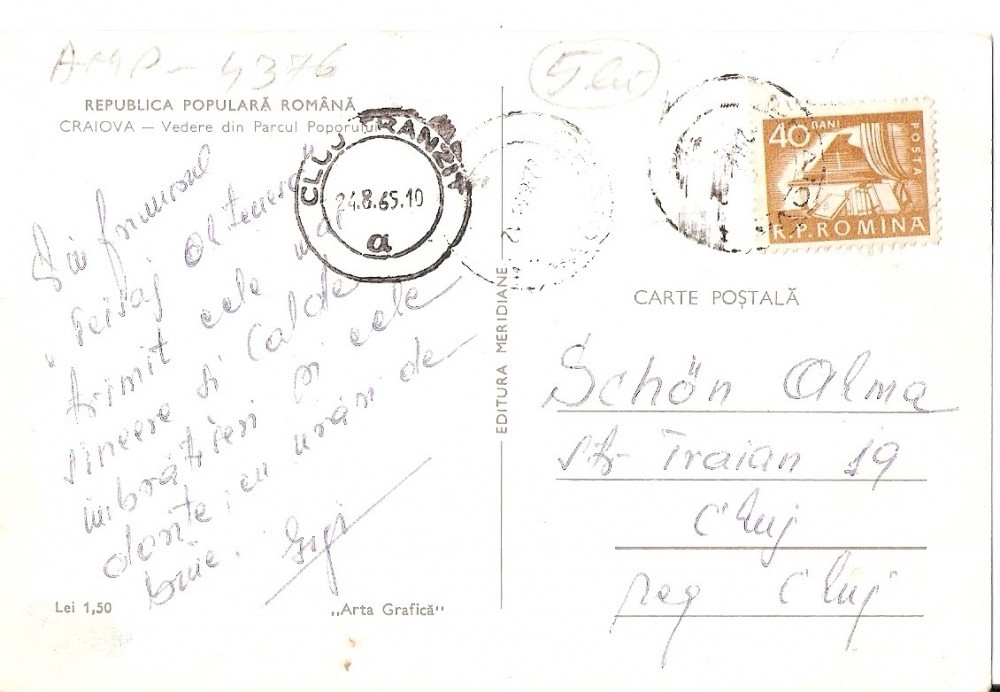 AMP - 4376
5 lei
REPUBLICA POPULARĂ ROMÂNĂ
CRAIOVA — Vedere din Parcul Poporului
CLUJ TRANZIT
24.8.65.10
a
40 BANI
POSTA
R.P.ROMINA
Din frumosul
Peisaj oltenesc
trimit cele mai
sincere și calde
îmbrățișeri și cele
dorite, cu urări de
bine. Gigi
Lei 1,50
„Arta Grafică“
EDITURA MERIDIANE
CARTE POȘTALĂ
Schön Alma
str Traian 19
Cluj
reg Cluj